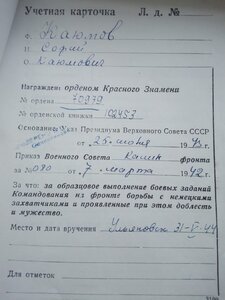 Учетная карточка Л. д. №
Ф. Каюмов
И. Сорий
О. Каюмович
Награжден орденом Красного Знамени
№ ордена 70979
№ орденской книжки
Основание: Указ Президиума Верховного Совета СССР
от 25 июня 1943 г.
Приказ Военного Совета Калин. фронта
за № 090 от 7 марта 1942 г.
За что: за образцовое выполнение боевых заданий
Командования на фронте борьбы с немецкими
захватчиками и проявленные при этом доблесть
и мужество.
Место и дата вручения Ульяновск 31-8-44
Для отметок